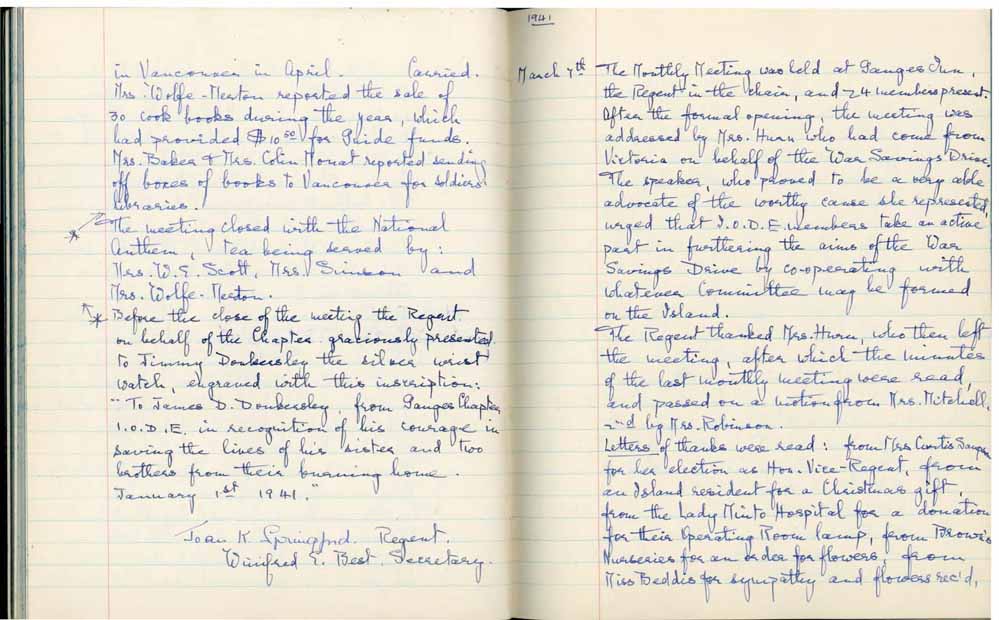 in Vancouver in April. Carried.
Mrs. Wolfe-Merton reported the sale of
30 cook books during the year, which
had provided $10.50 for Guide funds.
Mrs. Baker & Mrs. Colin Mouat reported sending
off boxes of books to Vancouver for soldiers'
libraries.
The meeting closed with the National
Anthem, tea being served by:
Mrs. W.E. Scott, Mrs. Simson and
Mrs. Wolfe-Merton.
Before the close of the meeting the Regent
on behalf of the Chapter graciously presented
to Jimmy Donkersley the silver wrist
watch, engraved with this inscription:
"To James D. Donkersley, from Ganges Chapter
I.O.D.E. in recognition of his courage in
saving the lives of his sister and two
brothers from their burning home.
January 1st 1941."
Joan K Springford. Regent.
Winifred E. Best. Secretary.
1941
March 7th The Monthly Meeting was held at Ganges Inn,
the Regent in the chain, and 24 members present.
After the formal opening, the meeting was
addressed by Mrs. Hurn who had come from
Victoria on behalf of the War Savings Drive.
The speaker, who proved to be a very able
advocate of the worthy cause she represented,
urged that I.O.D.E. members take an active
part in furthering the aims of the War
Savings Drive by co-operating with
whatever Committee may be formed
on the Island.
The Regent thanked Mrs. Hurn, who then left
the meeting, after which the minutes
of the last monthly meeting were read,
and passed on a motion from Mrs. Mitchell,
2nd by Mrs. Robinson.
Letters of thanks were read: from Mrs Curtis Sampson
for her election as Hon. Vice-Regent, from
an Island resident for a Christmas gift,
from the Lady Minto Hospital for a donation
for their Operating Room lamp, from Brown's
Nurseries for an order for flowers, from
Miss Beddis for sympathy and flowers rec'd,